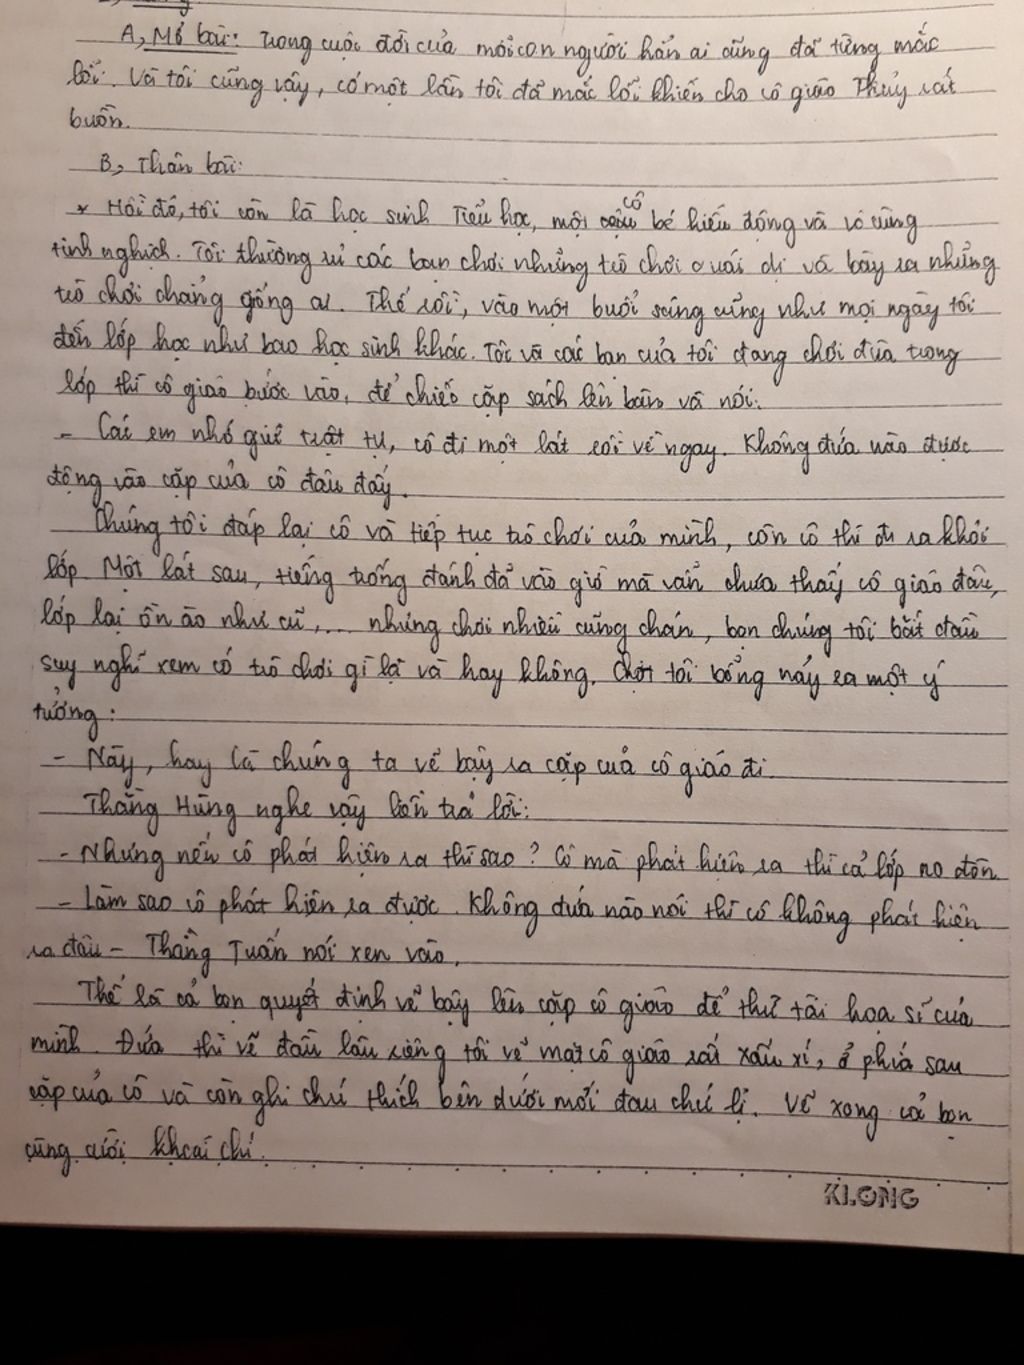 A, Mở bài: Trong cuộc đời của mỗi con người hẳn ai cũng đã từng mắc
lỗi. Và tôi cũng vậy, có một lần tôi đã mắc lỗi khiến cho cô giáo Thủy rất
buồn.
B, Thân bài:
* Hồi đó, tôi còn là học sinh Tiểu học, một cô bé hiếu động và vô cùng
tinh nghịch. Tôi thường rủ các bạn chơi những trò chơi quái dị và bày ra những
trò chơi chẳng giống ai. Thế rồi, vào một buổi sáng cũng như mọi ngày tôi
đến lớp học như bao học sinh khác. Tôi và các bạn của tôi đang chơi đùa trong
lớp thì cô giáo bước vào, để chiếc cặp sách lên bàn và nói:
- Các em nhớ giữ trật tự, cô đi một lát rồi về ngay. Không đứa nào được
động vào cặp của cô đâu đấy.
Chúng tôi đáp lại cô và tiếp tục trò chơi của mình, còn cô thì đi ra khỏi
lớp. Một lát sau, tiếng trống đánh đã vào giờ mà vẫn chưa thấy cô giáo đâu,
lớp lại ồn ào như cũ,... nhưng chơi nhiều cũng chán, bọn chúng tôi bắt đầu
suy nghĩ xem có trò chơi gì lạ và hay không. Chợt tôi bỗng nảy ra một ý
tưởng:
- Này, hay là chúng ta vẽ bậy ra cặp của cô giáo đi.
Thằng Hùng nghe vậy liền trả lời:
- Nhưng nếu cô phát hiện ra thì sao? Cô mà phát hiện ra thì cả lớp no đòn.
- Làm sao cô phát hiện ra được. Không đứa nào nói thì cô không phát hiện
ra đâu - Thằng Tuấn nói xen vào.
Thế là cả bọn quyết định vẽ bậy lên cặp cô giáo để thử tài họa sĩ của
mình. Đứa thì vẽ đầu lâu riêng tôi vẽ mặt cô giáo rất xấu xí, ở phía sau
cặp của cô và còn ghi chú thích bên dưới mới đau chứ lị. Vẽ xong cả bọn
cùng cười khoái chí.
KLONG